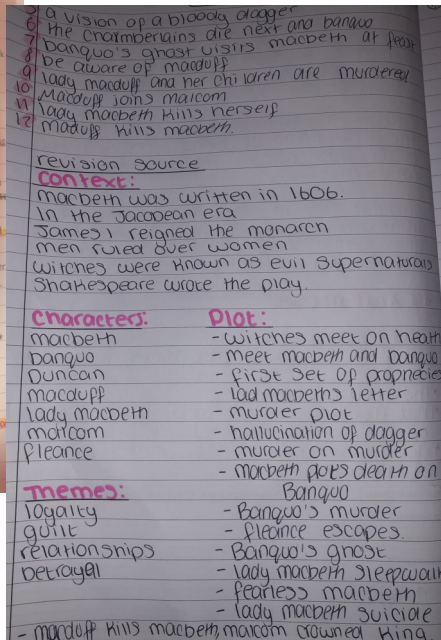 5 a vision of a bloody dagger
6 the chamberlains die next and banquo
7 banquo's ghost visits macbeth at feast
8 be aware of macduff
9 lady macduff and her children are murdered
10 Macduff joins malcom
11 lady macbeth kills herself
12 maduff kills macbeth.
revision source
Context:
macbeth was written in 1606.
In the Jacobean era
James I reigned the monarch
men ruled over women
witches were known as evil supernaturals
Shakespeare wrote the play.
Characters:
macbeth
banquo
Duncan
macduff
lady macbeth
malcom
fleance
Themes:
loyalty
guilt
relationships
betrayal
Plot:
- witches meet on heath
- meet macbeth and banquo
- first set of prophecies
- lad macbeths letter
- murder plot
- hallucination of dagger
- murder on murder
- macbeth plots death on
Banquo
- Banquo's murder
- fleance escapes.
- Banquo's ghost
- lady macbeth sleepwalk
- fearless macbeth
- lady macbeth suicide
- macduff kills macbeth, malcom crowned king